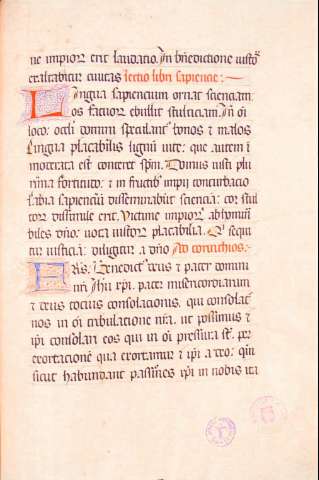 ne impiorꝝ erit laudatio. In bñedictione iustoꝝ
exaltabitur ciuitas lectio libri sapientie:
Lingua sapiencium ornat scienciam:
os fatuorꝝ ebullit stulticiam. In õi
loco: oculi domini speculant᷑ bonos ⁊ malos
Lingua placabilis lignũ uite: que autem ĩ
moderata est conteret spm̃. Domus iusti plu
rima fortitudo: ⁊ in fructib᷒ impij conturbacio
Labia sapienciũ disseminabũt sciẽciã: cor stul
torꝝ dissimile erit. Victime impiorꝝ abhomini
biles dño: uota iustorꝝ placabilia. Qui sequi
tur iusticiã: diligitur a dño Ad corinthios:
FRs̃. Benedict᷒ deus ⁊ pater domini
nr̃i Ihũ xp̃i. pater misericordiarum
⁊ deus tocius consolacionis. qui consolat᷑
nos in õi tribulatione nr̃a. ut possimus ⁊
ip̃i consolari eos qui in õi pressura st̃. per
exortacionẽ qua exortamur ⁊ ip̃i a deo: qm̃
sicut habundant passiões xp̃i in nobis ita